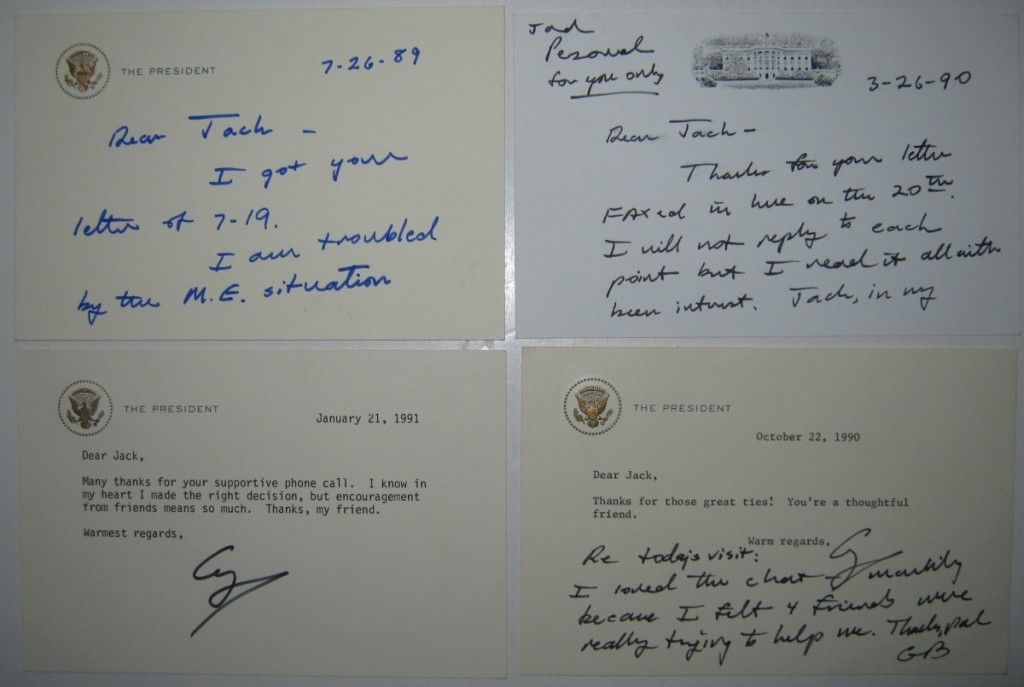 THE PRESIDENT
7-26-89
Dear Jack —
I got your
letter of 7-19.
I am troubled
by the M.E. situation
Personal
for you only
3-26-90
Dear Jack —
Thanks for your letter
FAXed in here on the 20th.
I will not reply to each
point but I read it all with
keen interest. Jack, in my
THE PRESIDENT
January 21, 1991
Dear Jack,
Many thanks for your supportive phone call. I know in
my heart I made the right decision, but encouragement
from friends means so much. Thanks, my friend.
Warmest regards,
THE PRESIDENT
October 22, 1990
Dear Jack,
Thanks for those great ties! You're a thoughtful
friend.
Warm regards,
Re today's visit:
I loved the chat —
because I felt 4 friends were
really trying to help me. Thanks, pal
GB